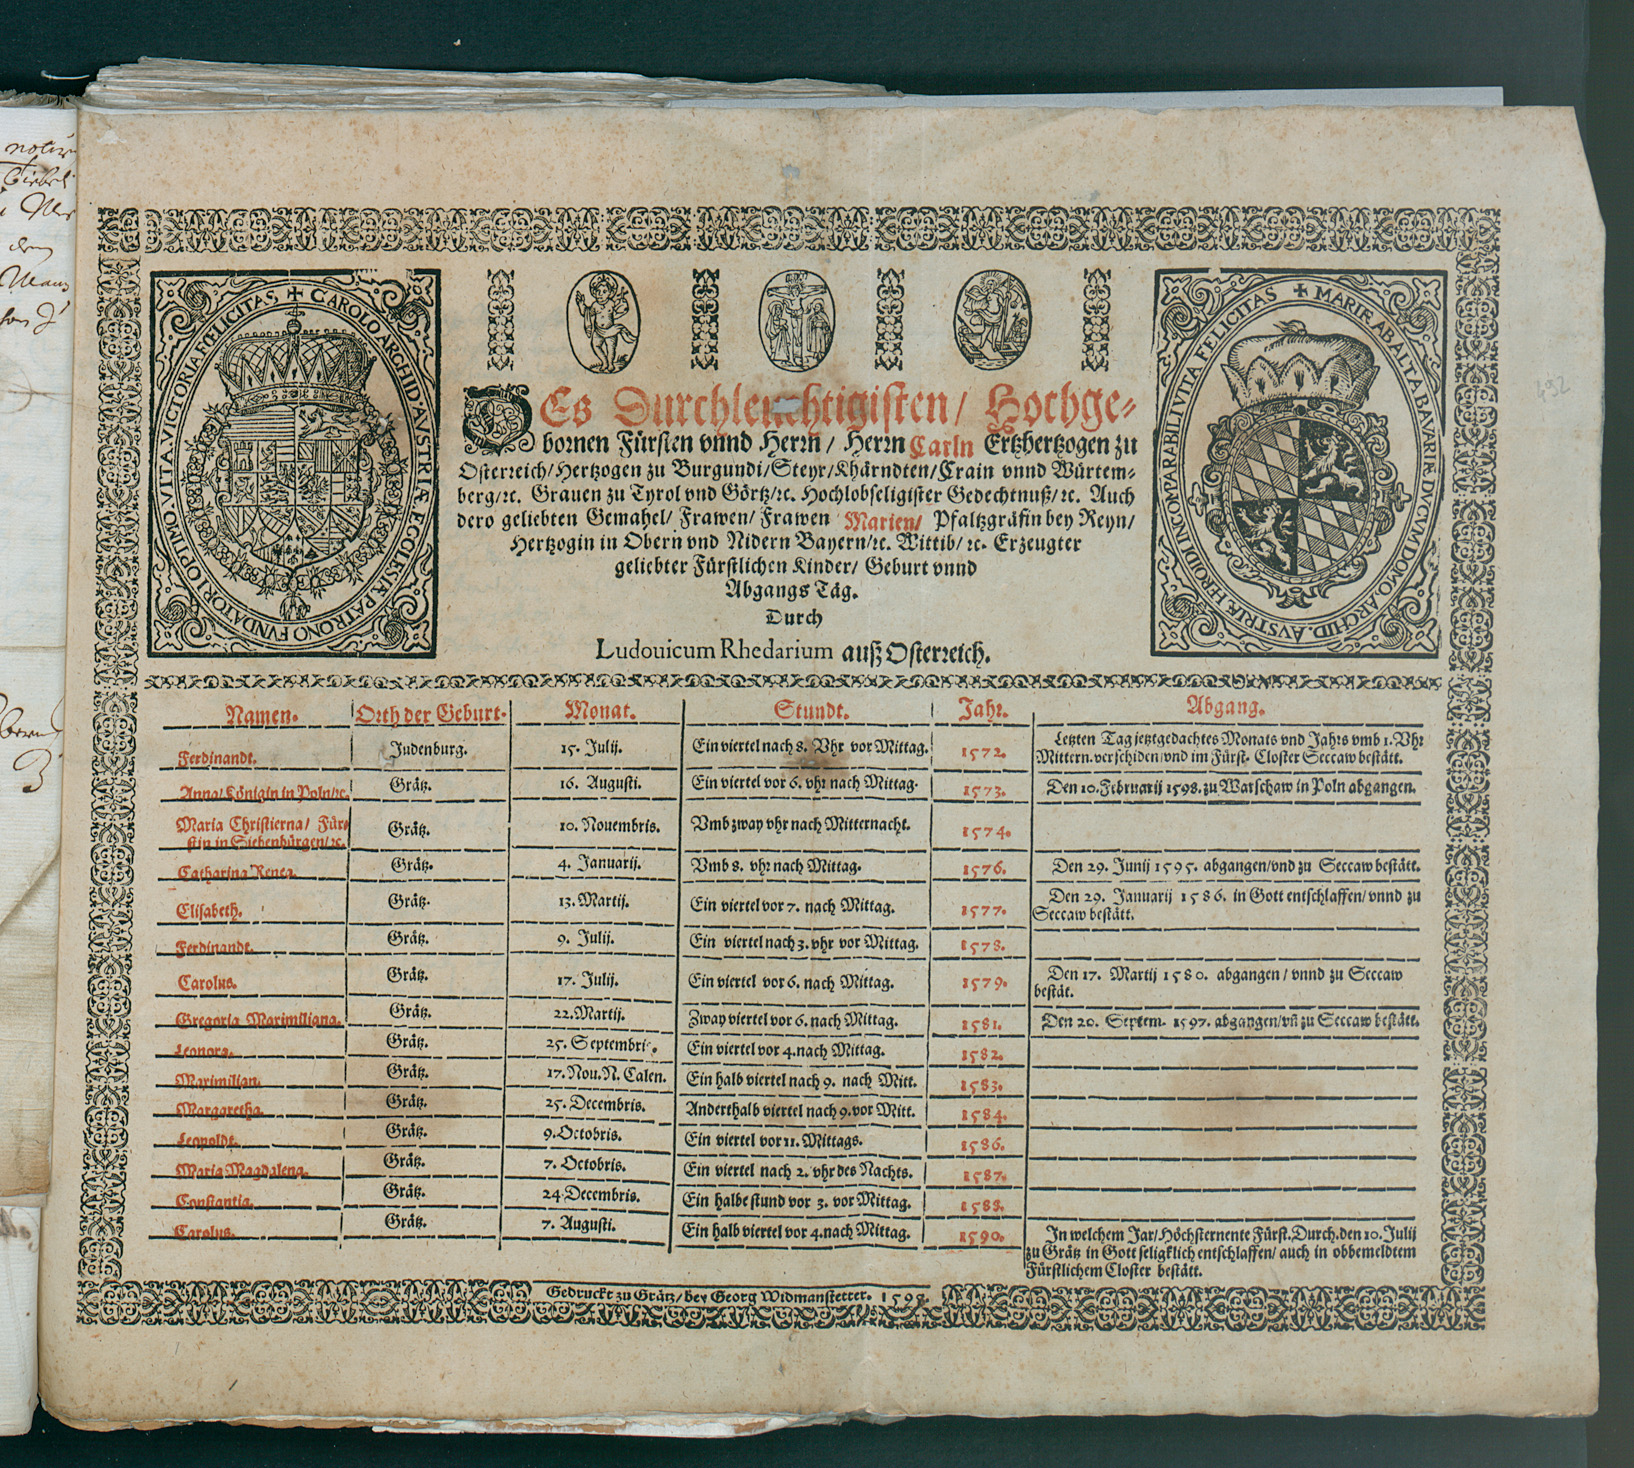 CAROLO ARCHID. AVSTRIÆ, ECCLESIÆ PATRONO FVNDATORI OPTIMO. VITA. VICTORIA. FŒLICITAS,
MARIÆ AB ALTA BAVARIÆ DVCVM DOMO. ARCHID. AVSTRIÆ HEROIDI INCOMPARABILI VITA FELICITAS
DEs Durchleuchtigisten/ Hochge-
bornen Fürsten vnnd Herrn̄/ Herrn Carln Ertzhertzogen zu
Osterreich/Hertzogen zu Burgundi/Steyr/Khärndten/Crain vnnd Würtem-
berg/ꝛc. Grauen zu Tyrol vnd Görtz/ꝛc. Hochlobseligister Gedechtnuß/ꝛc. Auch
dero geliebten Gemahel/ Frawen/ Frawen Marien/ Pfaltzgräfin bey Reyn/
Hertzogin in Obern vnd Nidern Bayern/ꝛc. Wittib/ ꝛc. Erzeugter
geliebter Fürstlichen Kinder/ Geburt vnnd
Abgangs Täg.
Durch
Ludouicum Rhedarium auß Osterreich.
Namen. Orth der Geburt. Monat. Stundt. Jahr. Abgang.
Ferdinandt. Judenburg. 15. Julij. Ein viertel nach 8. Vhr vor Mittag. 1572. Letzten Tag jetztgedachtes Monats vnd Jahrs vmb 1. Vhr
Mittern. verschiden/vnd im Fürst. Closter Seccaw bestätt.
Anna/ Königin in Poln/ꝛc. Grätz. 16. Augusti. Ein viertel vor 6. vhr nach Mittag. 1573. Den 10. Februarij 1598. zu Warschaw in Poln abgangen.
Maria Christierna/ Für-
stin in Siebenbürgen/ꝛc. Grätz. 10. Nouembris. Vmb zway vhr nach Mitternacht. 1574.
Catharina Renea. Grätz. 4. Januarij. Vmb 8. vhr nach Mittag. 1576. Den 29. Junij 1595. abgangen/vnd zu Seccaw bestätt.
Elisabeth. Grätz. 13. Martij. Ein viertel vor 7. nach Mittag. 1577. Den 29. Januarij 1586. in Gott entschlaffen/ vnnd zu
Seccaw bestätt.
Ferdinandt. Grätz. 9. Julij. Ein viertel nach 3. vhr vor Mittag. 1578.
Carolus. Grätz. 17. Julij. Ein viertel vor 6. nach Mittag. 1579. Den 17. Martij 1580. abgangen/ vnnd zu Seccaw
bestät.
Gregoria Maximiliana. Grätz. 22. Martij. Zway viertel vor 6. nach Mittag. 1581. Den 20. Septem. 1597. abgangen/vn̄ zu Seccaw bestätt.
Leonora. Grätz. 25. Septembris. Ein viertel vor 4. nach Mittag. 1582.
Maximilian. Grätz. 17. Nou. N. Calen. Ein halb viertel nach 9. nach Mitt. 1583.
Margaretha. Grätz. 25. Decembris. Anderthalb viertel nach 9. vor Mitt. 1584.
Leopoldt. Grätz. 9. Octobris. Ein viertel vor 11. Mittags. 1586.
Maria Magdalena. Grätz. 7. Octobris. Ein viertel nach 2. vhr des Nachts. 1587.
Constantia. Grätz. 24. Decembris. Ein halbe stund vor 3. vor Mittag. 1588.
Carolus. Grätz. 7. Augusti. Ein halb viertel vor 4. nach Mittag. 1590. In welchem Jar/ Höchsternente Fürst. Durch. den 10. Julij
zu Grätz in Gott seligklich entschlaffen/ auch in obbemeldtem
Fürstlichem Closter bestätt.
Gedruckt zu Grätz/ bey Georg Widmanstetter. 1598.